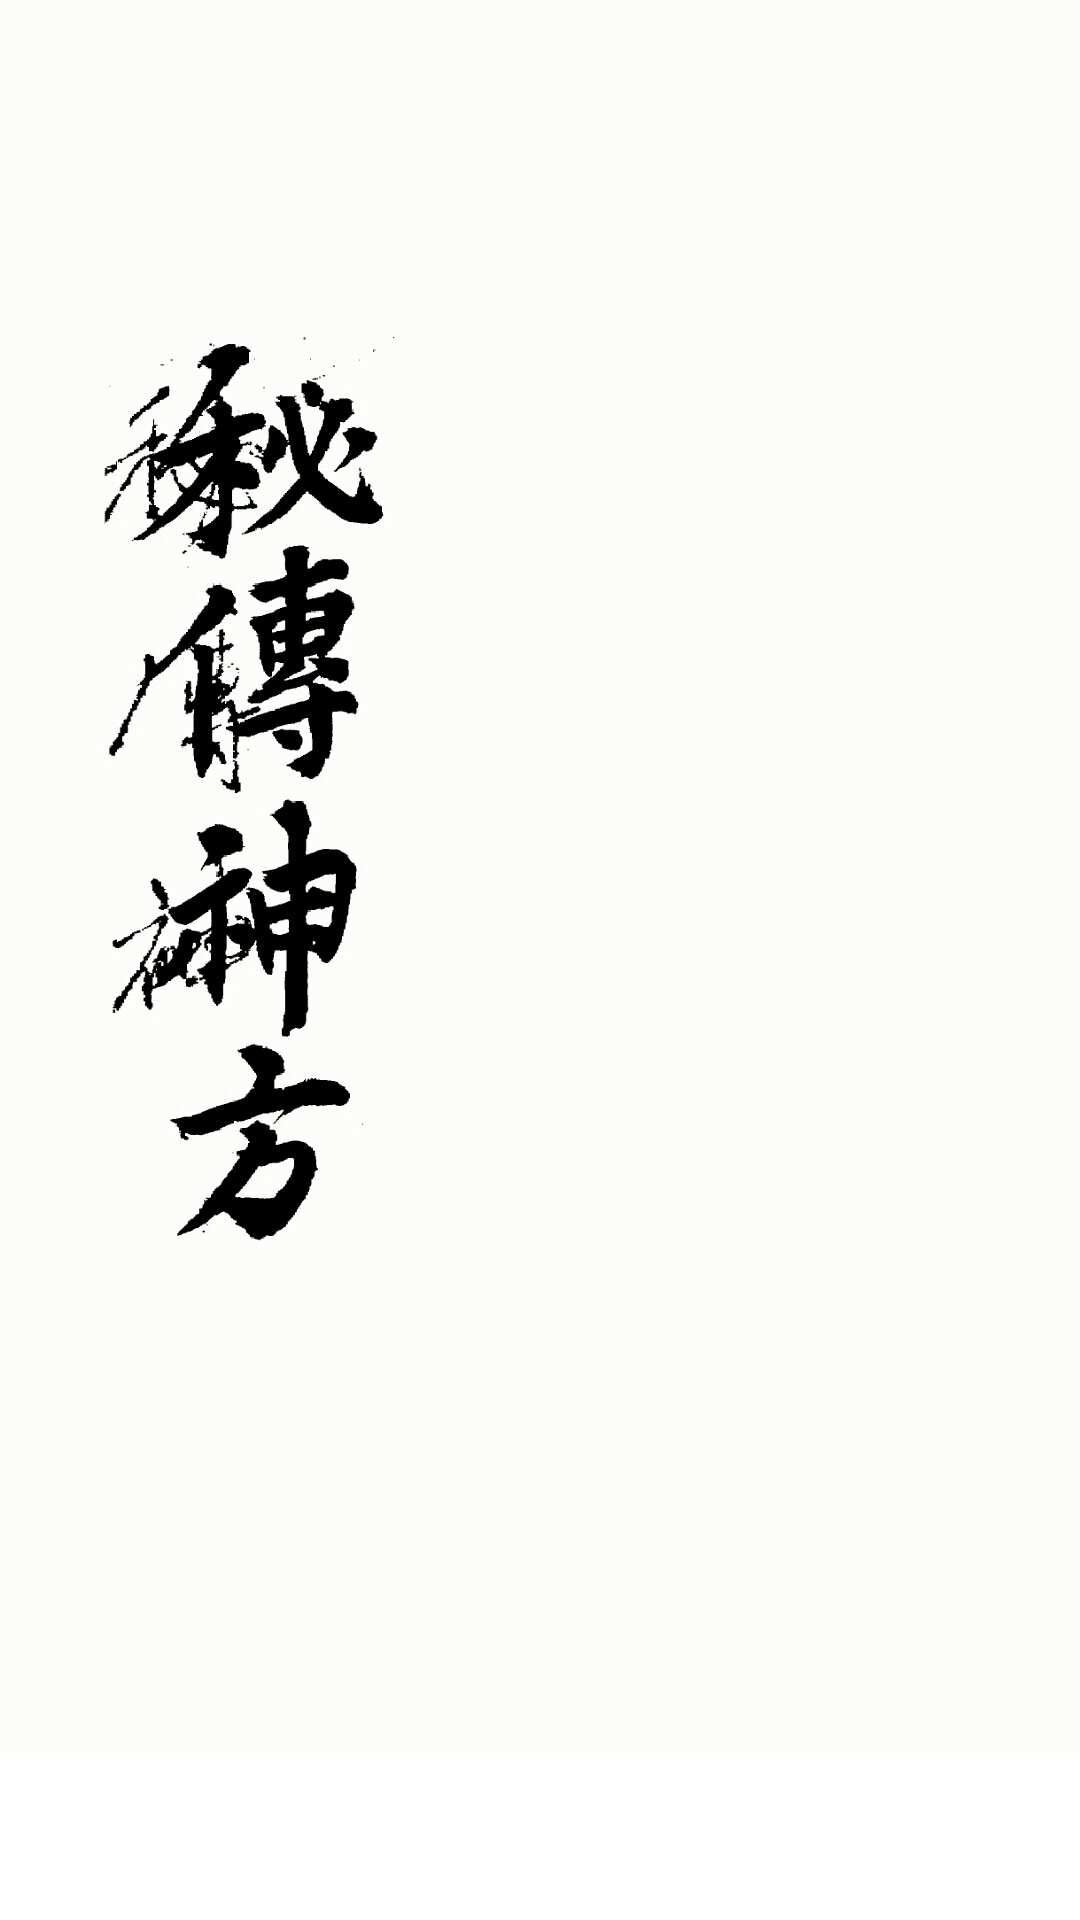 秘傳神方